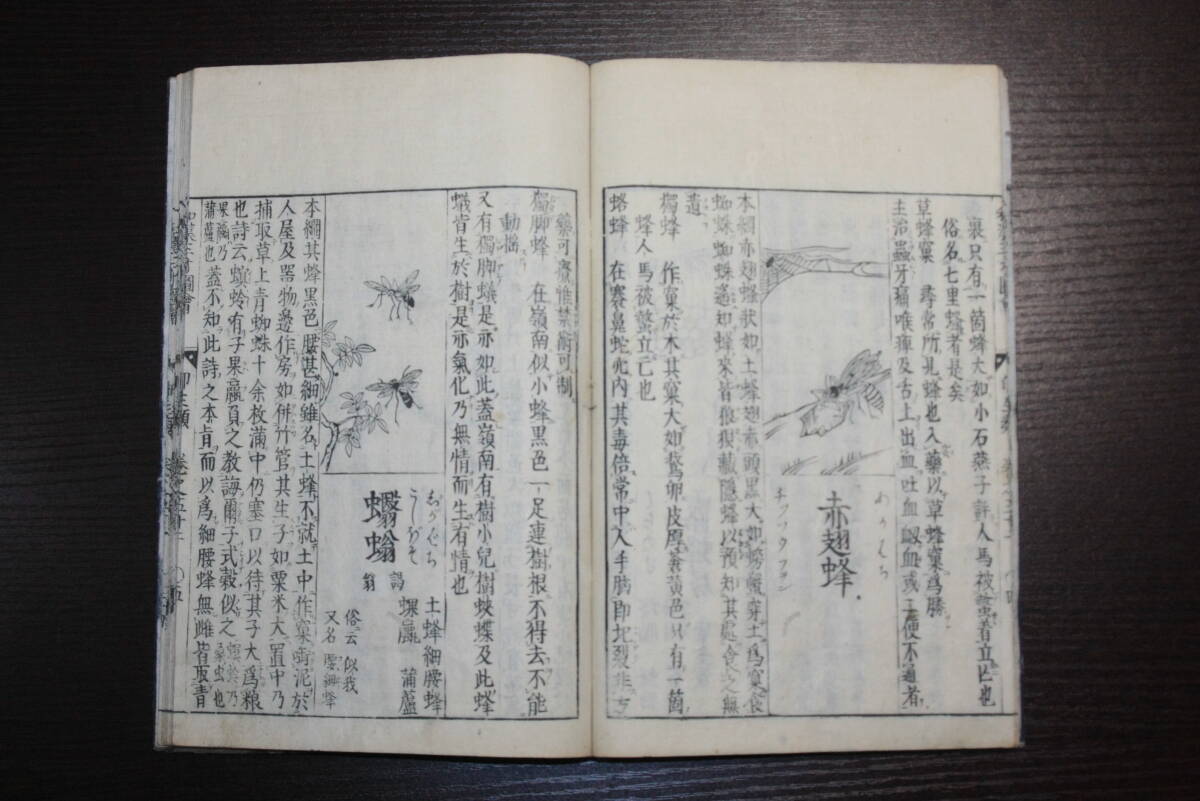 裹只有一箇蜂大如小石燕子許人馬被螫着立亡也
俗名七里蜂者是矣
草蜂窠 尋常所見蜂也入藥以草蜂窠爲勝
主治蟲牙痛喉痺及舌上出血吐血衂血或二便不通者
あかばち
赤翅蜂
チフイフヲン
本綱赤翅蜂狀如土蜂翅赤頭黑大如螃蟹穿土爲窠食
蜘蛛蜘蛛遙知蜂來皆狼狽藏隱蜂以預知其處食之無
遺
獨蜂 作窠於木其窠大如鵞卵皮厚蒼黃色只有一箇
蜂人馬被螫立亡也
蛒蜂 在褰鼻蛇穴內其毒倍常中人手胸即圮裂非方
藥可療惟禁術可制
獨脚蜂 在嶺南似小蜂黑色一足連樹根不得去不能
動搖
又有獨脚蟻是亦如此蓋嶺南有樹小兒樹蛺蝶及此蜂
蟻皆生於樹是亦氣化乃無情而生有情也
ぢがばち
こしぼそ
蠮螉
謁翁
土蜂細腰蜂
蜾蠃 蒲蘆
俗云 似我
又名 腰細蜂
本綱其蜂黑色腰甚細雖名土蜂不就土中作窠啣泥於
人屋及器物邊作房如併竹管其生子如粟米大置中乃
捕取草上青蜘蛛十余枚滿中仍塞口以待其子大爲粮
也詩云螟蛉有子果蠃負之教誨爾子式穀似之 螟蛉乃桑虫也
果蠃乃蒲蘆也 蓋不知此詩之本旨而以爲細腰蜂無雌皆取青
和漢三才圖會 卵生類 卷之五十二 ○五